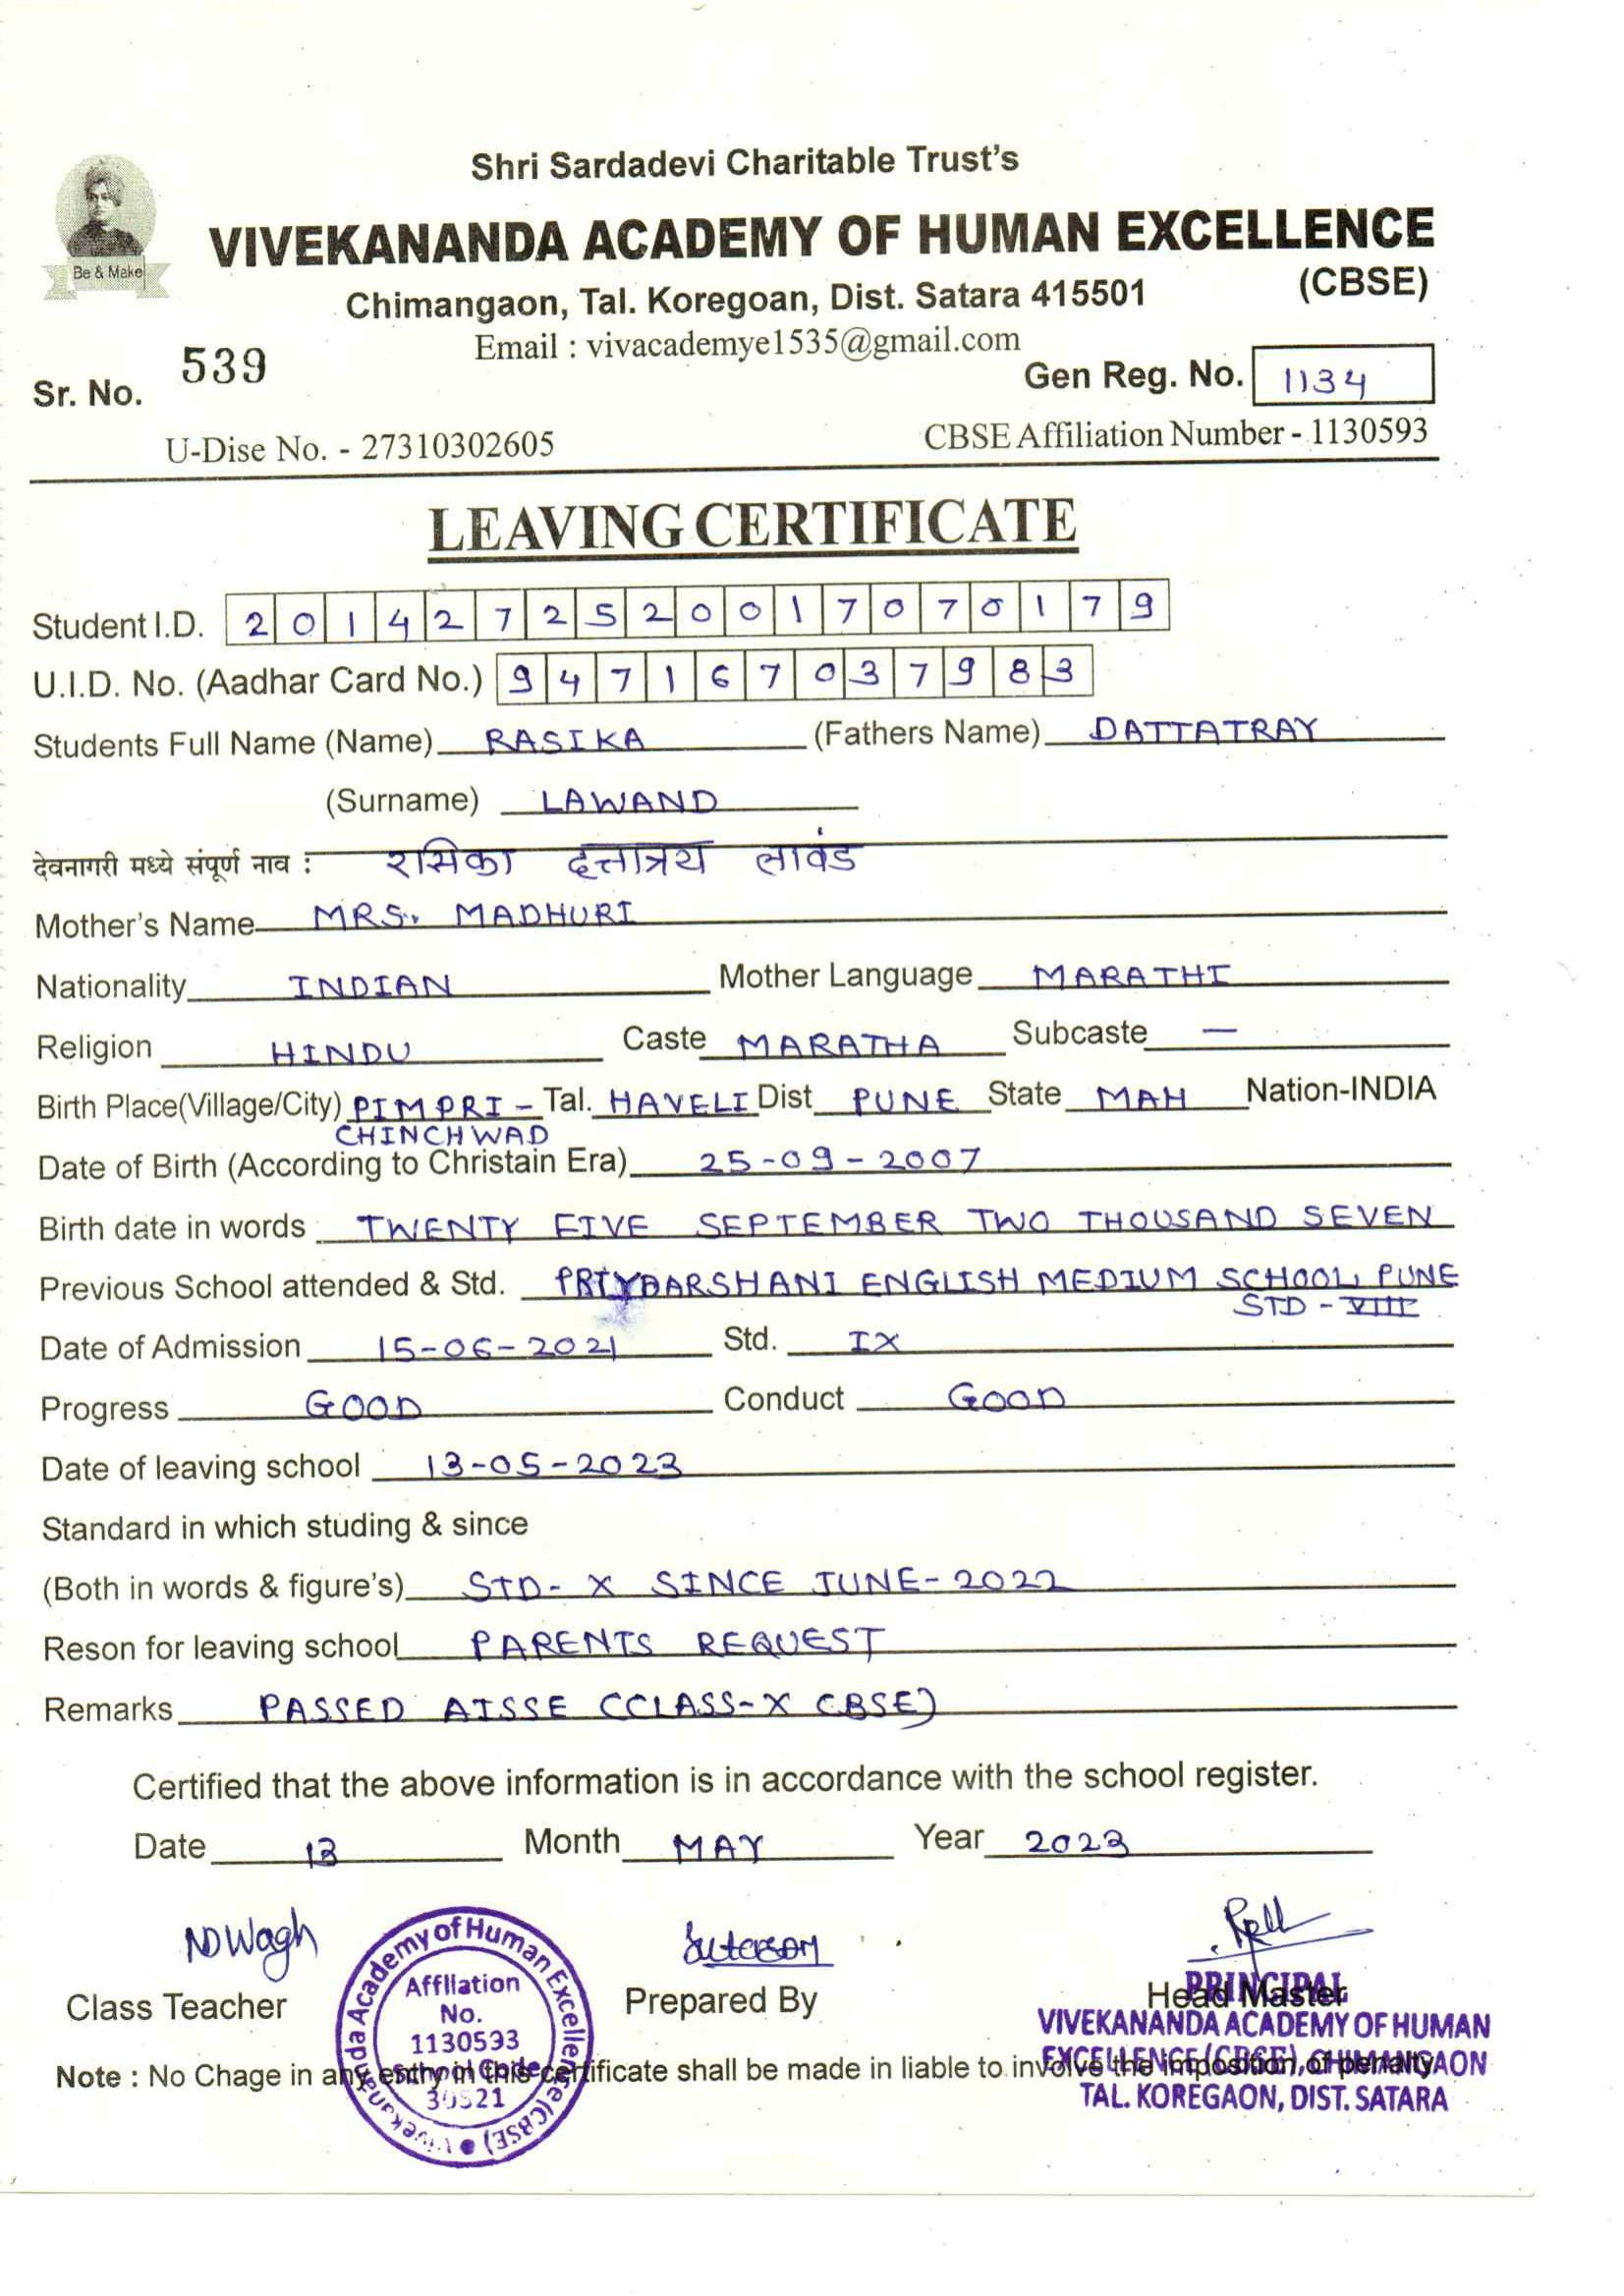 Shri Sardadevi Charitable Trust's
VIVEKANANDA ACADEMY OF HUMAN EXCELLENCE
(CBSE)
Be & Make
Chimangaon, Tal. Koregoan, Dist. Satara 415501
Email : vivacademye1535@gmail.com
Sr. No. 539 Gen Reg. No. 1134
U-Dise No. - 27310302605 CBSE Affiliation Number - 1130593
LEAVING CERTIFICATE
Student I.D. 2014272520017070179
U.I.D. No. (Aadhar Card No.) 947167037983
Students Full Name (Name) RASIKA (Fathers Name) DATTATRAY
(Surname) LAWAND
देवनागरी मध्ये संपूर्ण नाव : रसिका दत्तात्रय लावंड
Mother's Name MRS. MADHURI
Nationality INDIAN Mother Language MARATHI
Religion HINDU Caste MARATHA Subcaste —
Birth Place(Village/City) PIMPRI - Tal. HAVELI Dist PUNE State MAH Nation-INDIA
CHINCHWAD
Date of Birth (According to Christain Era) 25-09-2007
Birth date in words TWENTY FIVE SEPTEMBER TWO THOUSAND SEVEN
Previous School attended & Std. PRIYDARSHANI ENGLISH MEDIUM SCHOOL, PUNE
STD - VIII
Date of Admission 15-06-2021 Std. IX
Progress GOOD Conduct GOOD
Date of leaving school 13-05-2023
Standard in which studing & since
(Both in words & figure's) STD- X SINCE JUNE-2022
Reson for leaving school PARENTS REQUEST
Remarks PASSED AISSE (CLASS-X CBSE)
Certified that the above information is in accordance with the school register.
Date 13 Month MAY Year 2023
NDWagh
Class Teacher Prepared By Head Master
PRINCIPAL
VIVEKANANDA ACADEMY OF HUMAN
EXCELLENCE (CBSE), CHIMANGAON
TAL. KOREGAON, DIST. SATARA
Note : No Chage in any entry in this certificate shall be made in liable to involve the imposition of penalty
Vivekananda Academy of Human Excellence (CBSE)
Affiliation
No.
1130593
School Code
30521